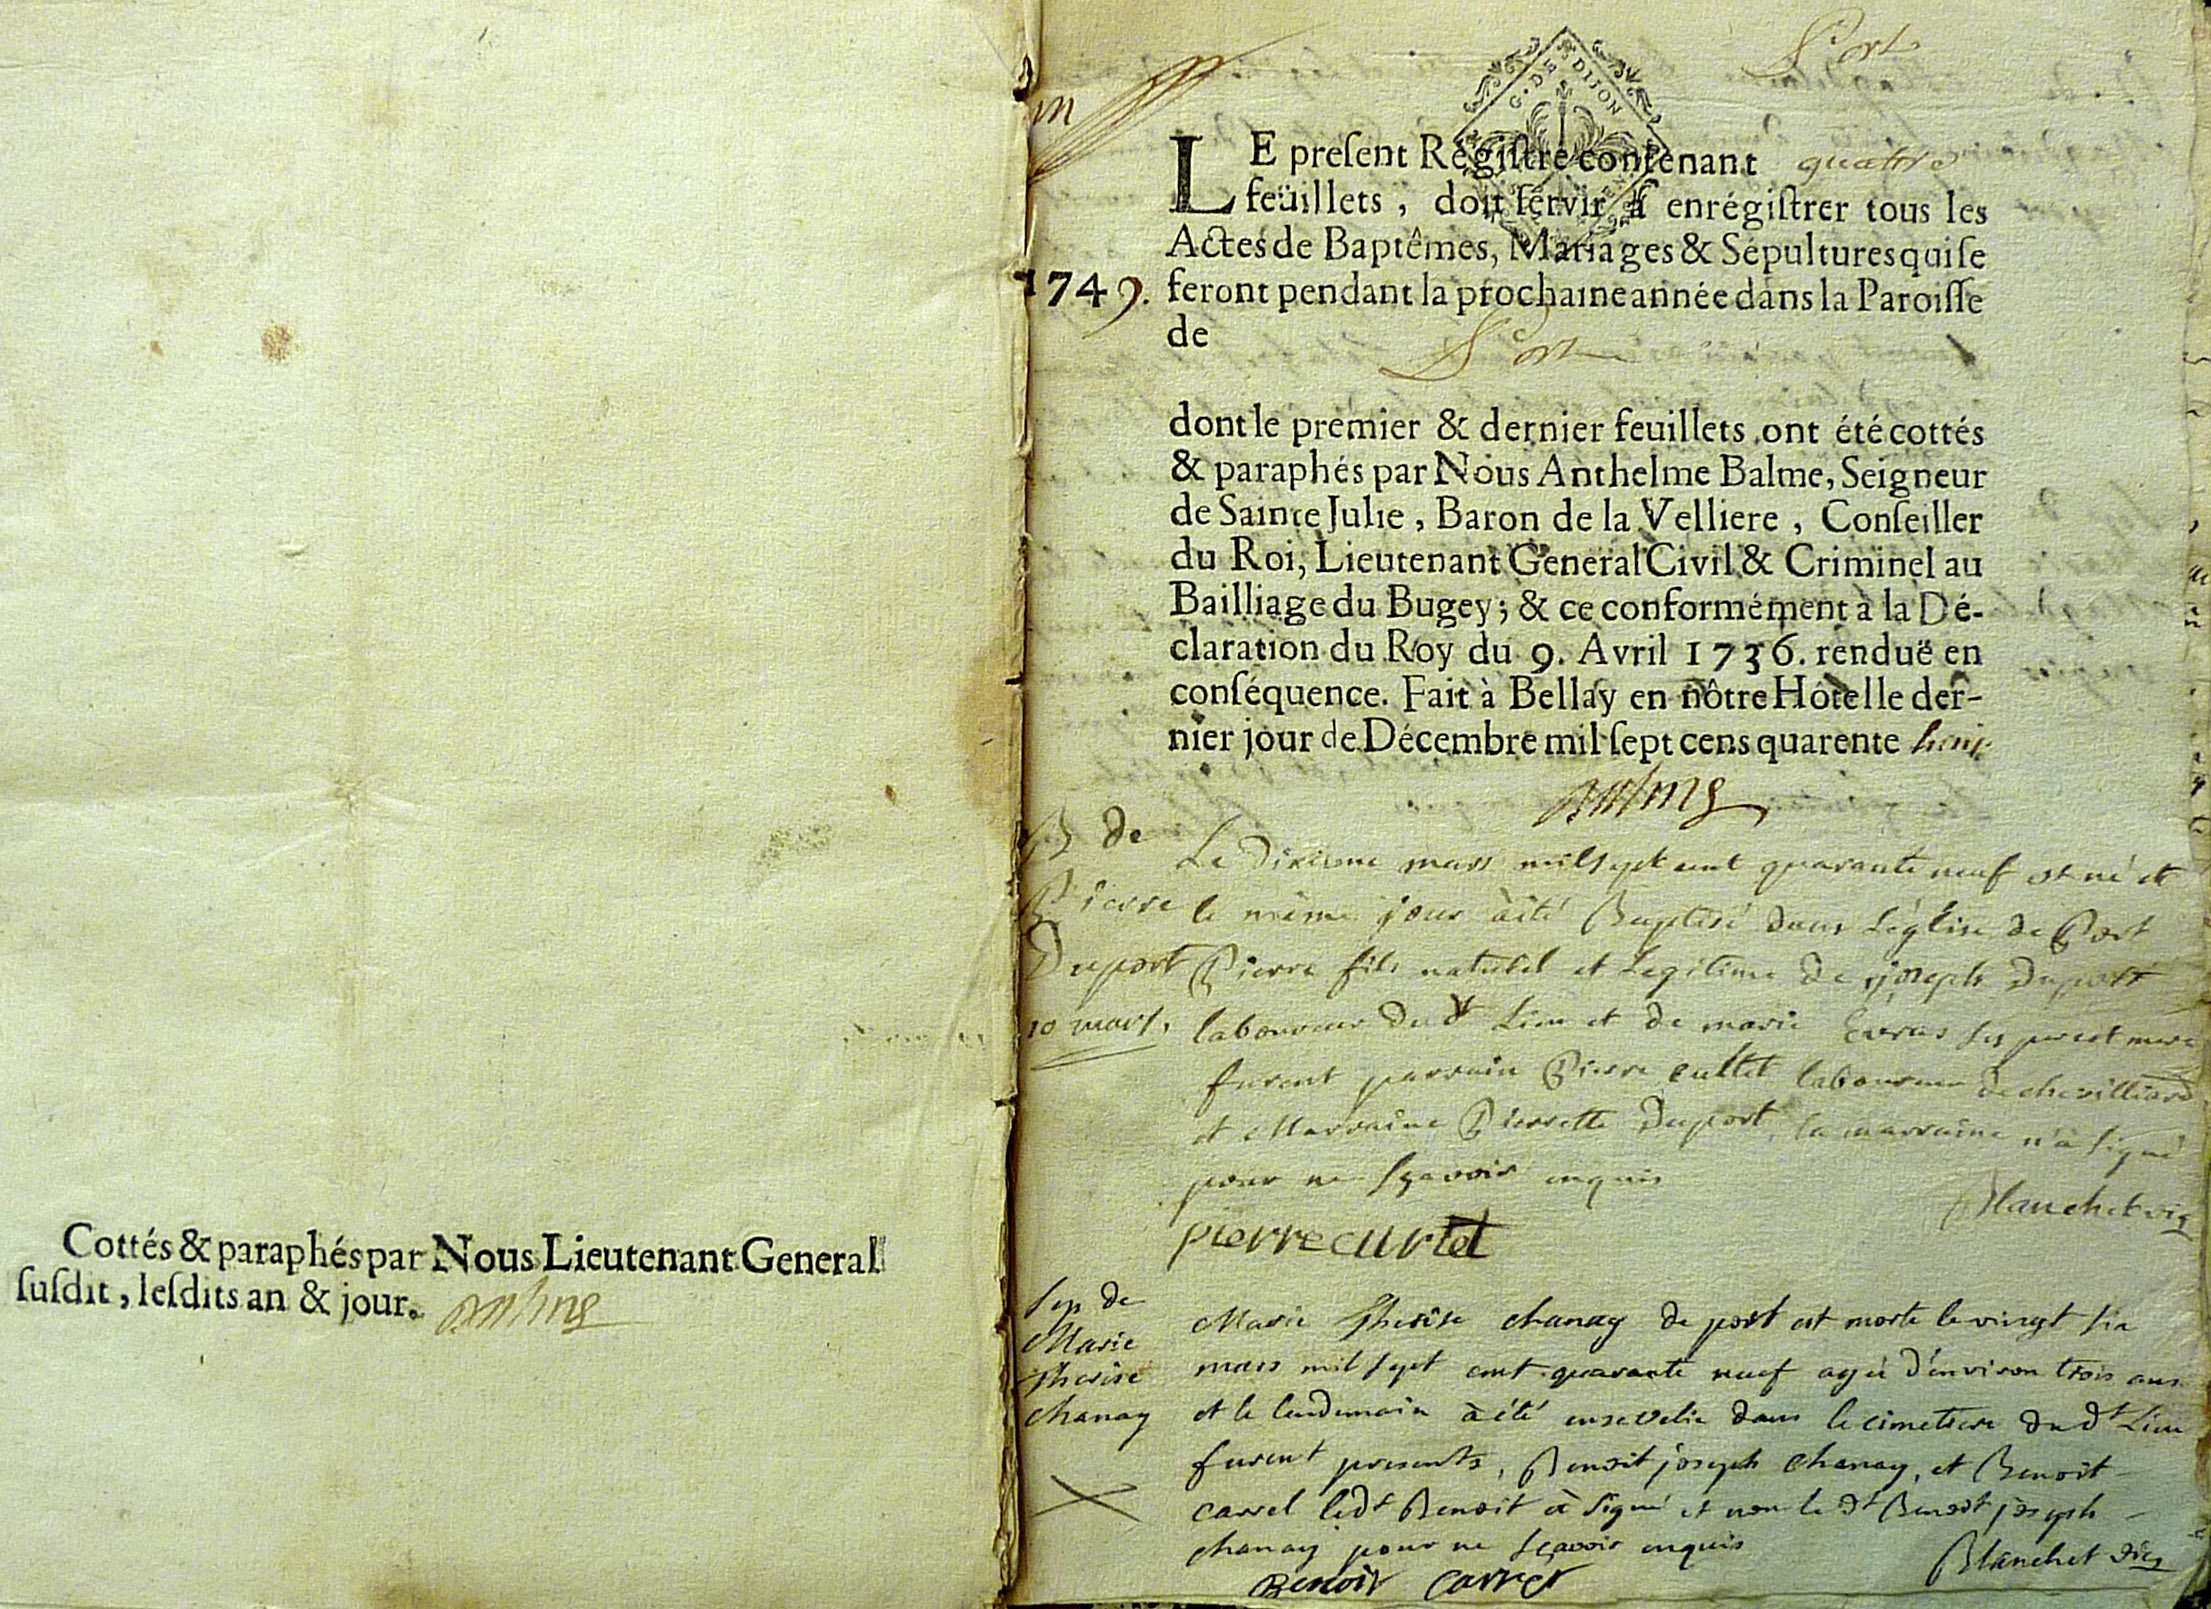 Cottés & paraphés par Nous Lieutenant General
ſuſdit, leſdits an & jour. Balme
Port
G. DE DIJON
LE preſent Régiſtre contenant quatre
feüillets, doit ſervir à enrégiſtrer tous les
Actes de Baptêmes, Mariages & Sépultures qui ſe
1749. feront pendant la prochaine année dans la Paroiſſe
de Port
dont le premier & dernier feuillets ont été cottés
& paraphés par Nous Anthelme Balme, Seigneur
de Sainte Julie, Baron de la Velliere, Conſeiller
du Roi, Lieutenant General Civil & Criminel au
Bailliage du Bugey; & ce conformément à la Dé-
claration du Roy du 9. Avril 1736. renduë en
conſéquence. Fait à Bellay en nôtre Hôtel le der-
nier jour de Décembre mil ſept cens quarente huit
Balme
B de
Pierre
Duport
10 mars,
Le Dixieme mars mil sept cent quarante neuf est né et
le même jour à été Baptisé dans L'église de Port
Pierre fils naturel et Legitime de joseph Duport
laboureur dud.t Lieu et de marie ses pere et mere
furent parrain Pierre laboureur de chevilliard
et Marraine Pierrette Duport, la marraine n'a signé
pour ne sçavoir enquis
Blanchet vic
pierre curtet
Sep de
Marie
Therése
chanay
Marie Therése chanay de port est morte le vingt six
mars mil sept cent quarante neuf agée d'environ trois ans
et le lendemain à été ensevelie dans le cimetiere dud.t Lieu
furent presents, Benoit joseph chanay, et Benoit
carrel led.t Benoit à signé et non le d.t Benoit joseph
chanay pour ne sçavoir enquis
Blanchet vic
Benoit carrel